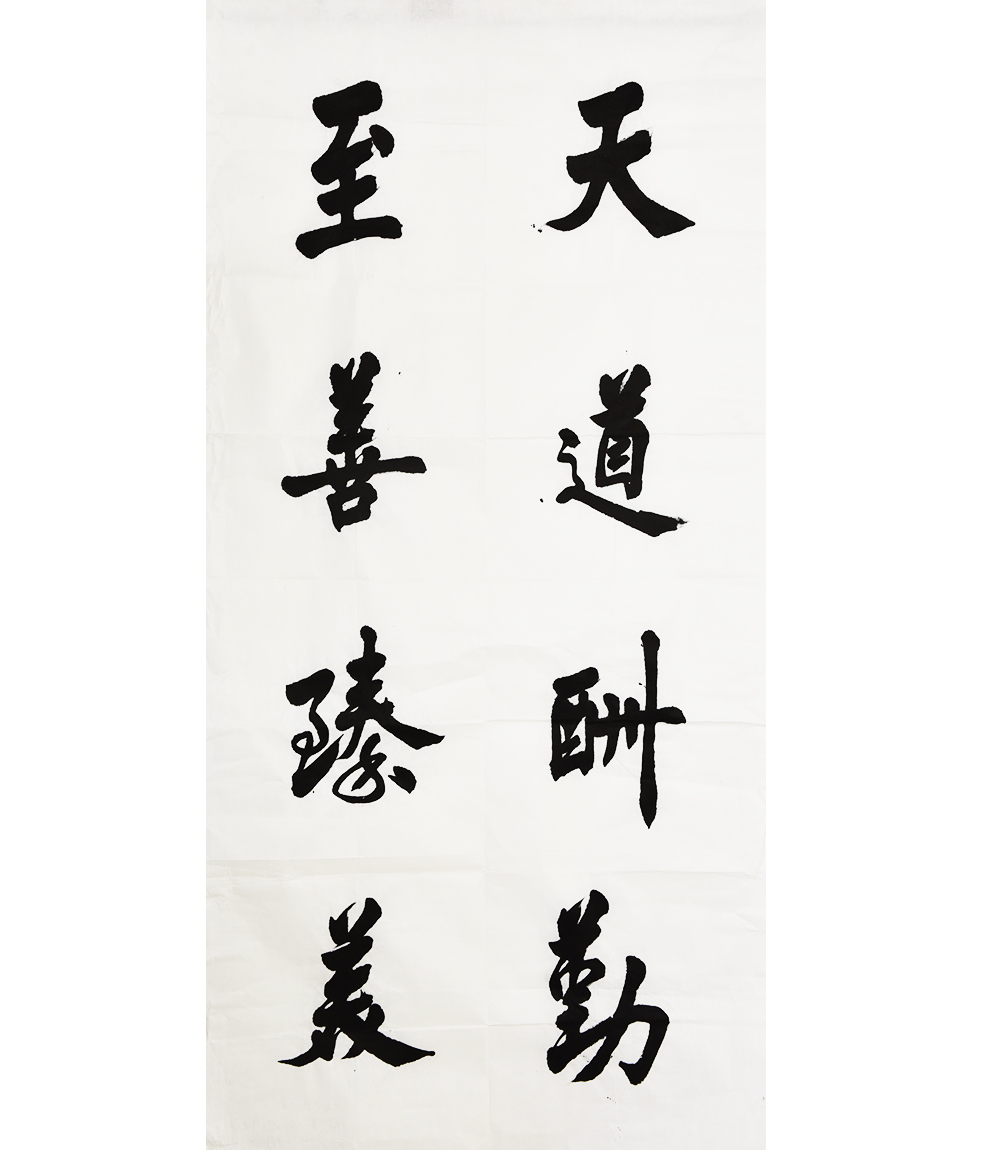 天道酬勤
至善臻美